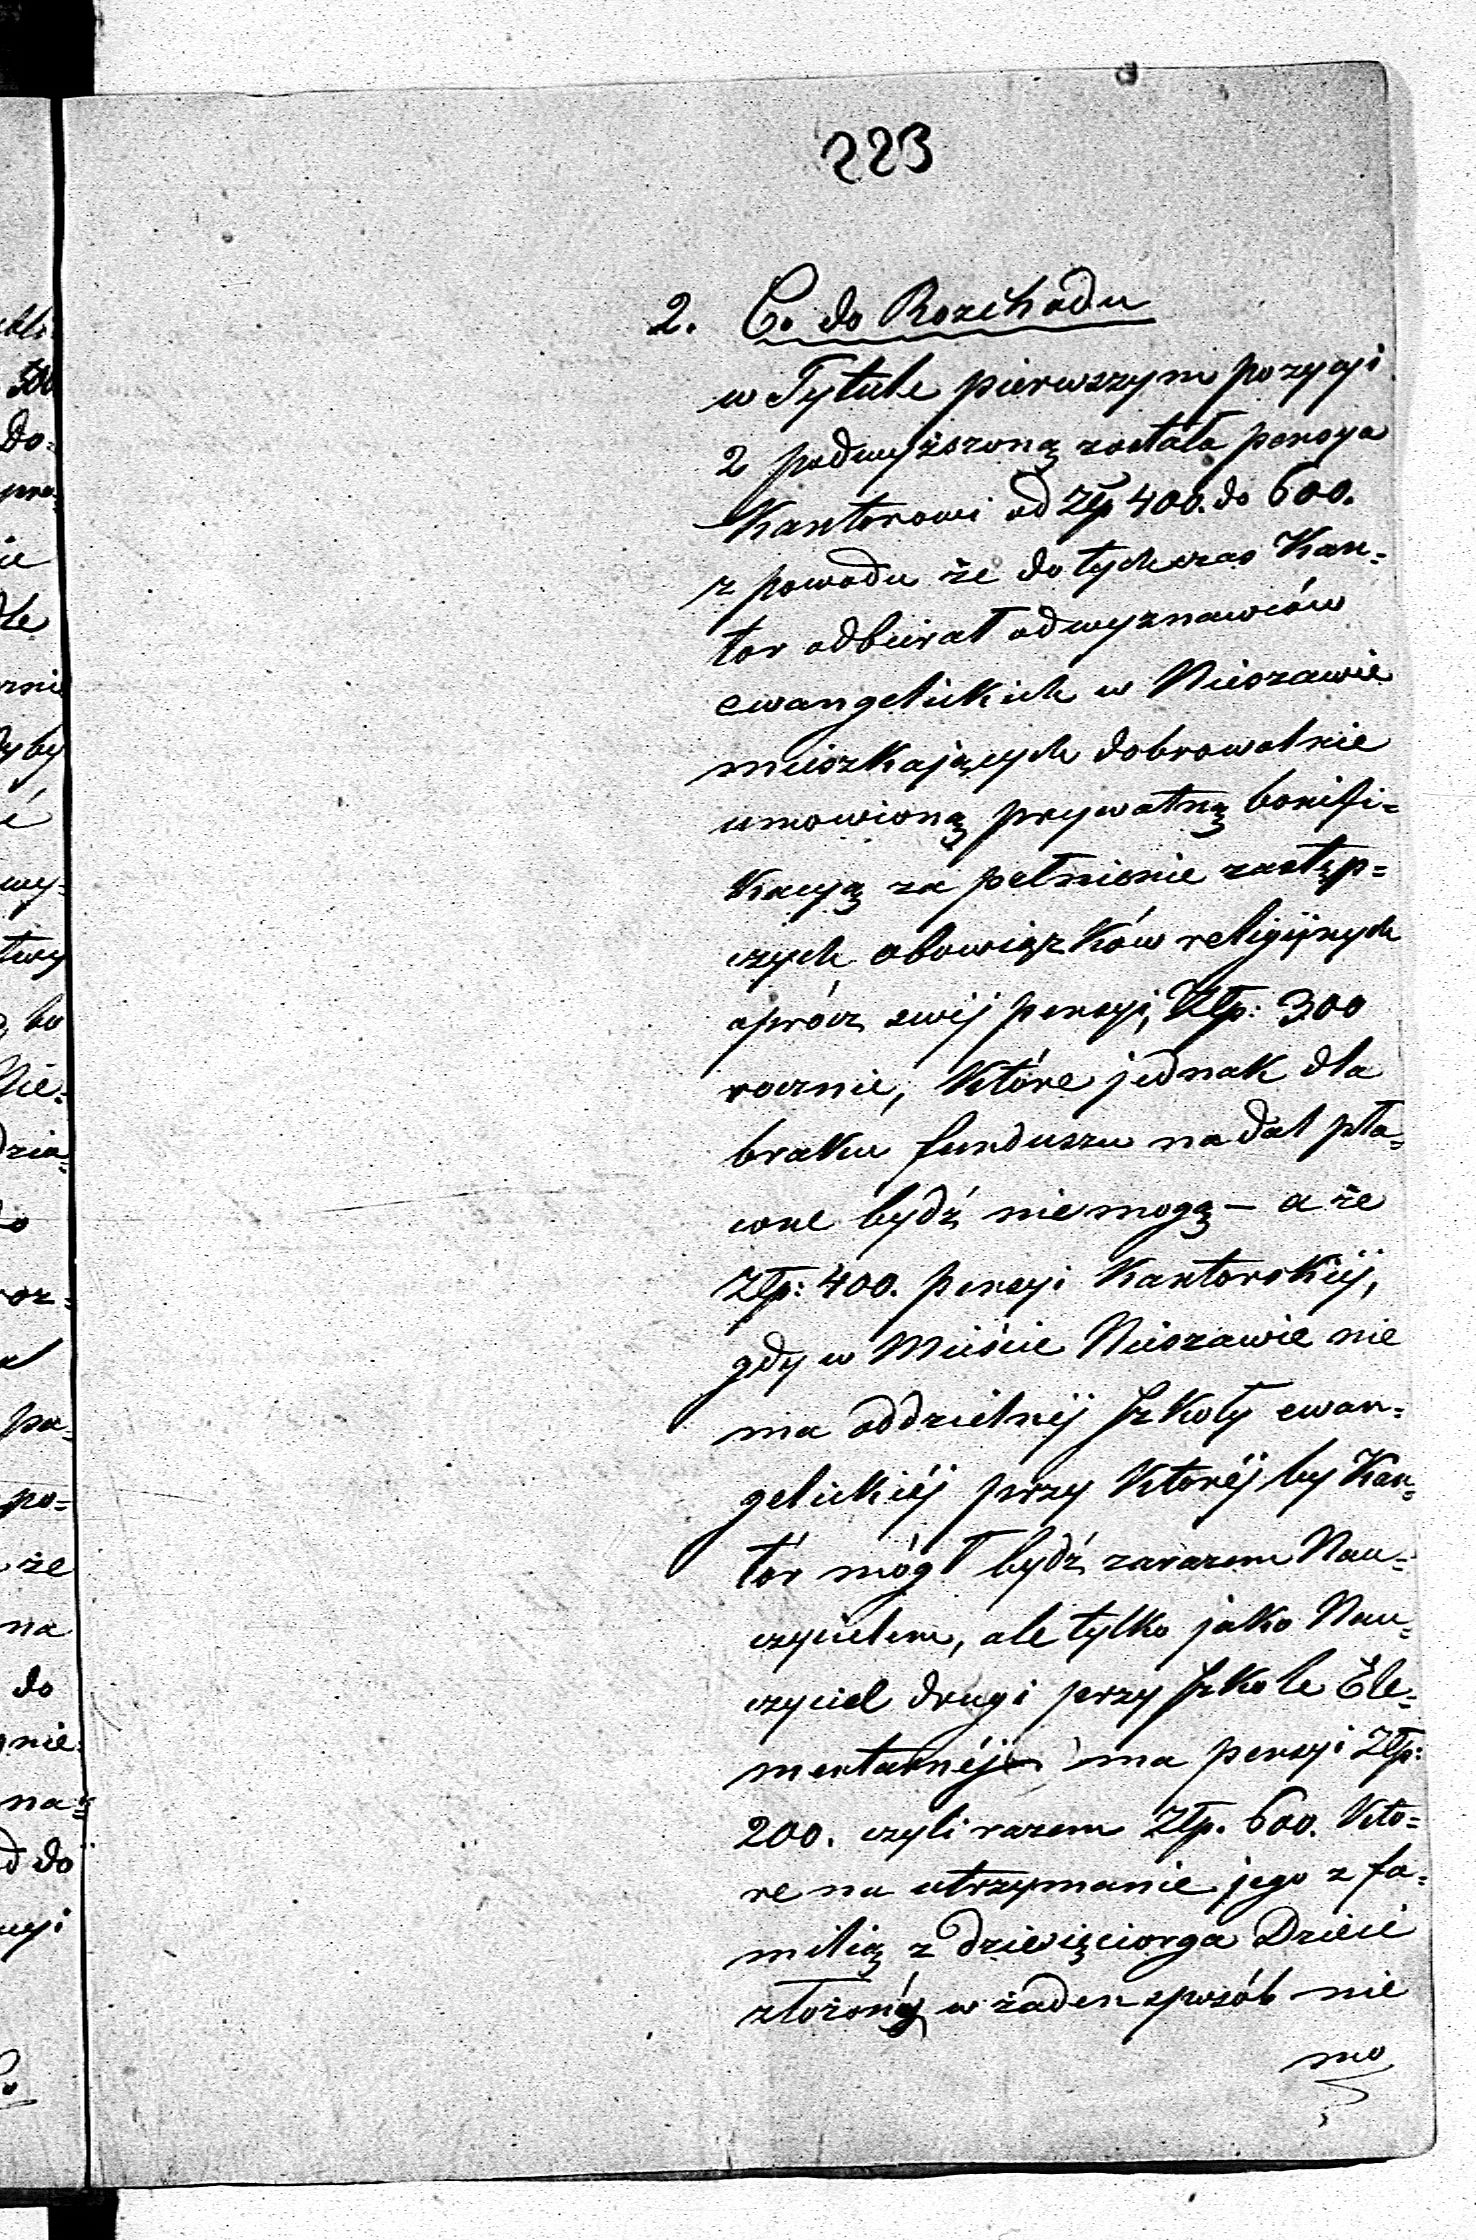 223
2. Co do Rozchodu
w Tytule pierwszym pozycyi
2 podwyższoną została pensya
Kantorowi od Złp 400. do 600.
z powodu że dotychczas Kan=
tor odbierał od wyznawców
ewangelickich w Nieszawie
mieszkających dobrowolnie
umowioną prywatną bonifi=
kacyą za pełnienie zastęp=
czych obowiązków religijnych
oprócz swéj pensyi, Złp: 300
rocznie, które jednak dla
braku funduszu nadal pła=
cone bydź niemogą — a że
Złp: 400. pensyi Kantorskiéj,
gdy w Mieście Nieszawie nie
ma oddzielnéj Szkoły ewan=
gelickiéj przy któréj by Kan=
tór mógł bydź zarazem Nau=
czycielem, ale tylko jako Nau=
czyciel drugi przy Szkole Ele=
mentarnéj ma pensyi Złp:
200. czyli razem Złp. 600. któ=
re na utrzymanie jego z fa=
milią z dziewięciorga Dzieci
złożonéj w żaden sposób nie
mo